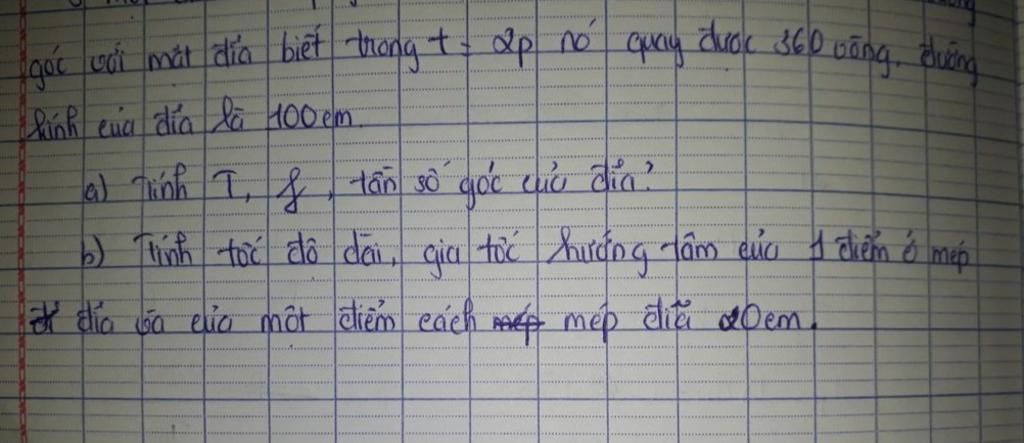 góc với mặt đĩa biết trong t = 2p nó quay được 360 vòng. đường
kính của đĩa là 100cm
a) Tính T, f, tần số góc của đĩa?
b) Tính tốc độ dài, gia tốc hướng tâm của 1 điểm ở mép
đĩa và của một điểm cách mép đĩa 20cm.